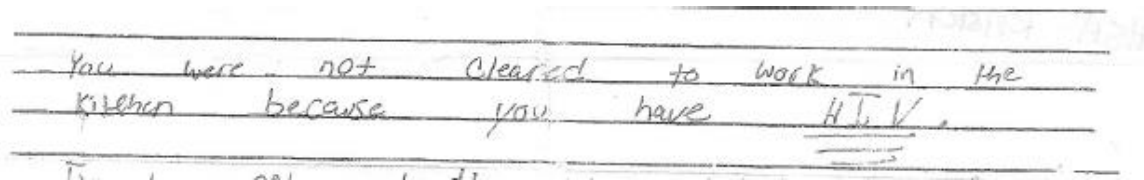 You were not Cleared to work in the
Kitchen because you have HIV.